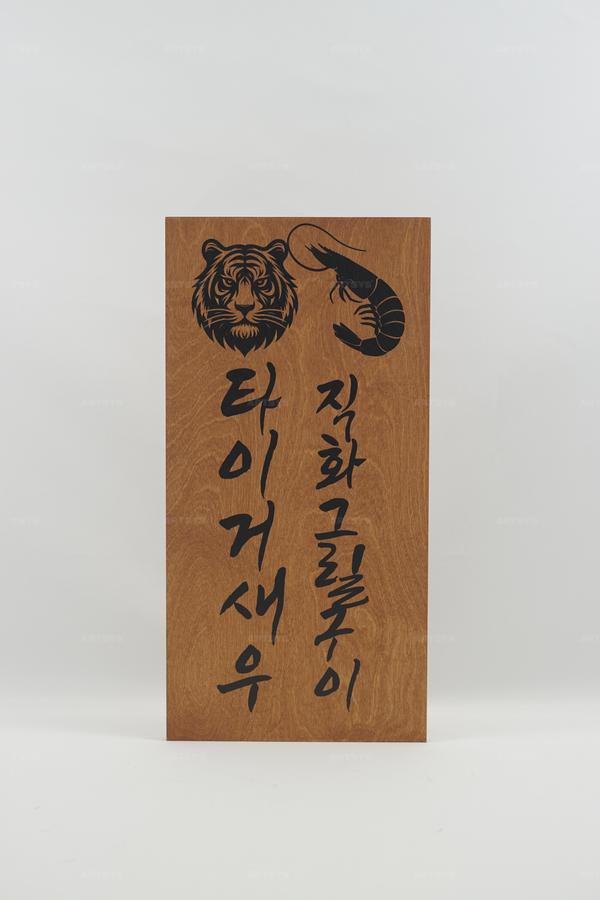 타이거새우
직화그릴구이